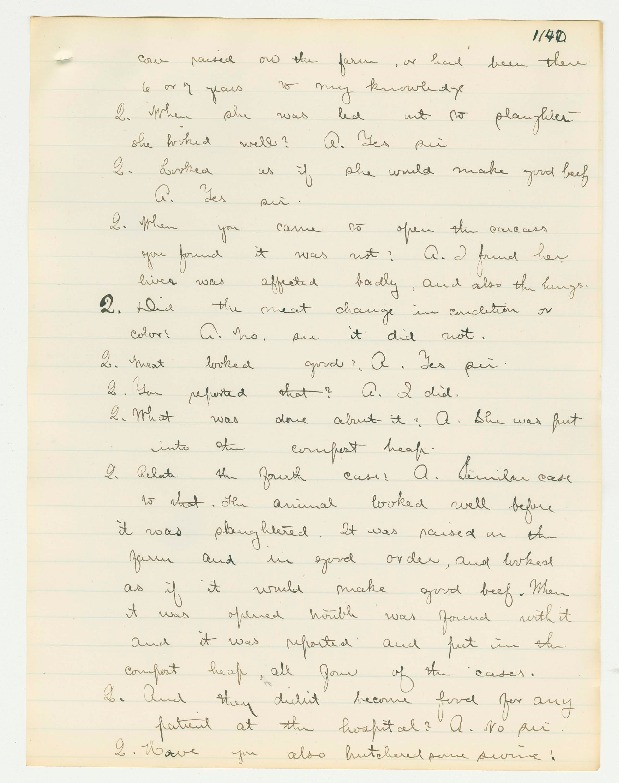 1140
cow raised on the farm, or had been there
6 or 7 years to my knowledge
Q. When she was led out to slaughter
she looked well? A. Yes sir
Q. Looked as if she would make good beef
A. Yes sir.
Q. When you came to open the carcass
you found it was not? A. I found her
liver was affected badly, and also the lungs.
Q. Did the meat change in condition or
color? A. No, sir it did not.
Q. Meat looked good? A. Yes sir.
Q. You reported that? A. I did.
Q. What was done about it? A. She was put
into the compost heap.
Q. Relate the fourth case? A. Similar case
to that. The animal looked well before
it was slaughtered. It was raised on the
farm and in good order, and looked
as if it would make good beef. When
it was opened trouble was found with it
and it was reported and put in the
compost heap, all four of the cases.
Q. And they didn't become food for any
patient at the hospital? A. No sir.
Q. Have you also butchered some swine?